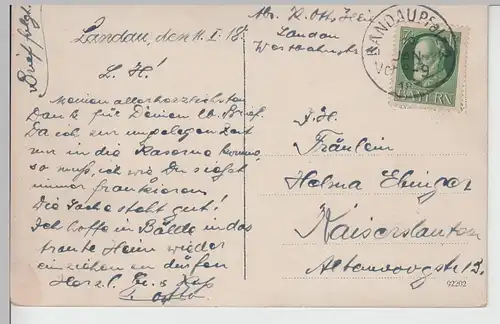 Brief folgt.
Landau, den 11. I. 18.
Abs. K. Otto
Landau
L. H!
Meinen allerherzlichsten
Dank für Deinen lb. Brief.
Da ich zur ungelegen Zeit
nur in die Kaserne komme,
so muß, ich wie Du siehst
immer frankieren
Die Sache steht gut!
Ich hoffe in Bälde in das
traute Heim wieder
einziehen zu dürfen
Herzl. Gr. u. Kuß
Otto
LANDAU PFALZ
BAYERN
Fräulein
Helma Ebinger
Kaiserslautern
Altenwoogstr 13.
92202